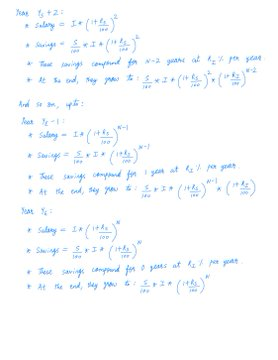 Year Y_s + 2:
* Salary = I * (1+R_s/100)^2
* Savings = S/100 * I * (1+R_s/100)^2
* These savings compound for N-2 years at R_I % per year
* At the end, they grow to: S/100 * I * (1+R_s/100)^2 * (1+R_I/100)^N-2
And so on, upto:
Year Y_E - 1:
* Salary = I * (1+R_s/100)^N-1
* Savings = S/100 * I * (1+R_s/100)^N-1
* These savings compound for 1 year at R_I % per year
* At the end, they grow to: S/100 * I * (1+R_s/100)^N-1 * (1+R_I/100)
Year Y_E:
* Salary = I * (1+R_s/100)^N
* Savings = S/100 * I * (1+R_s/100)^N
* These savings compound for 0 years at R_I % per year.
* At the end, they grow to: S/100 * I * (1+R_s/100)^N